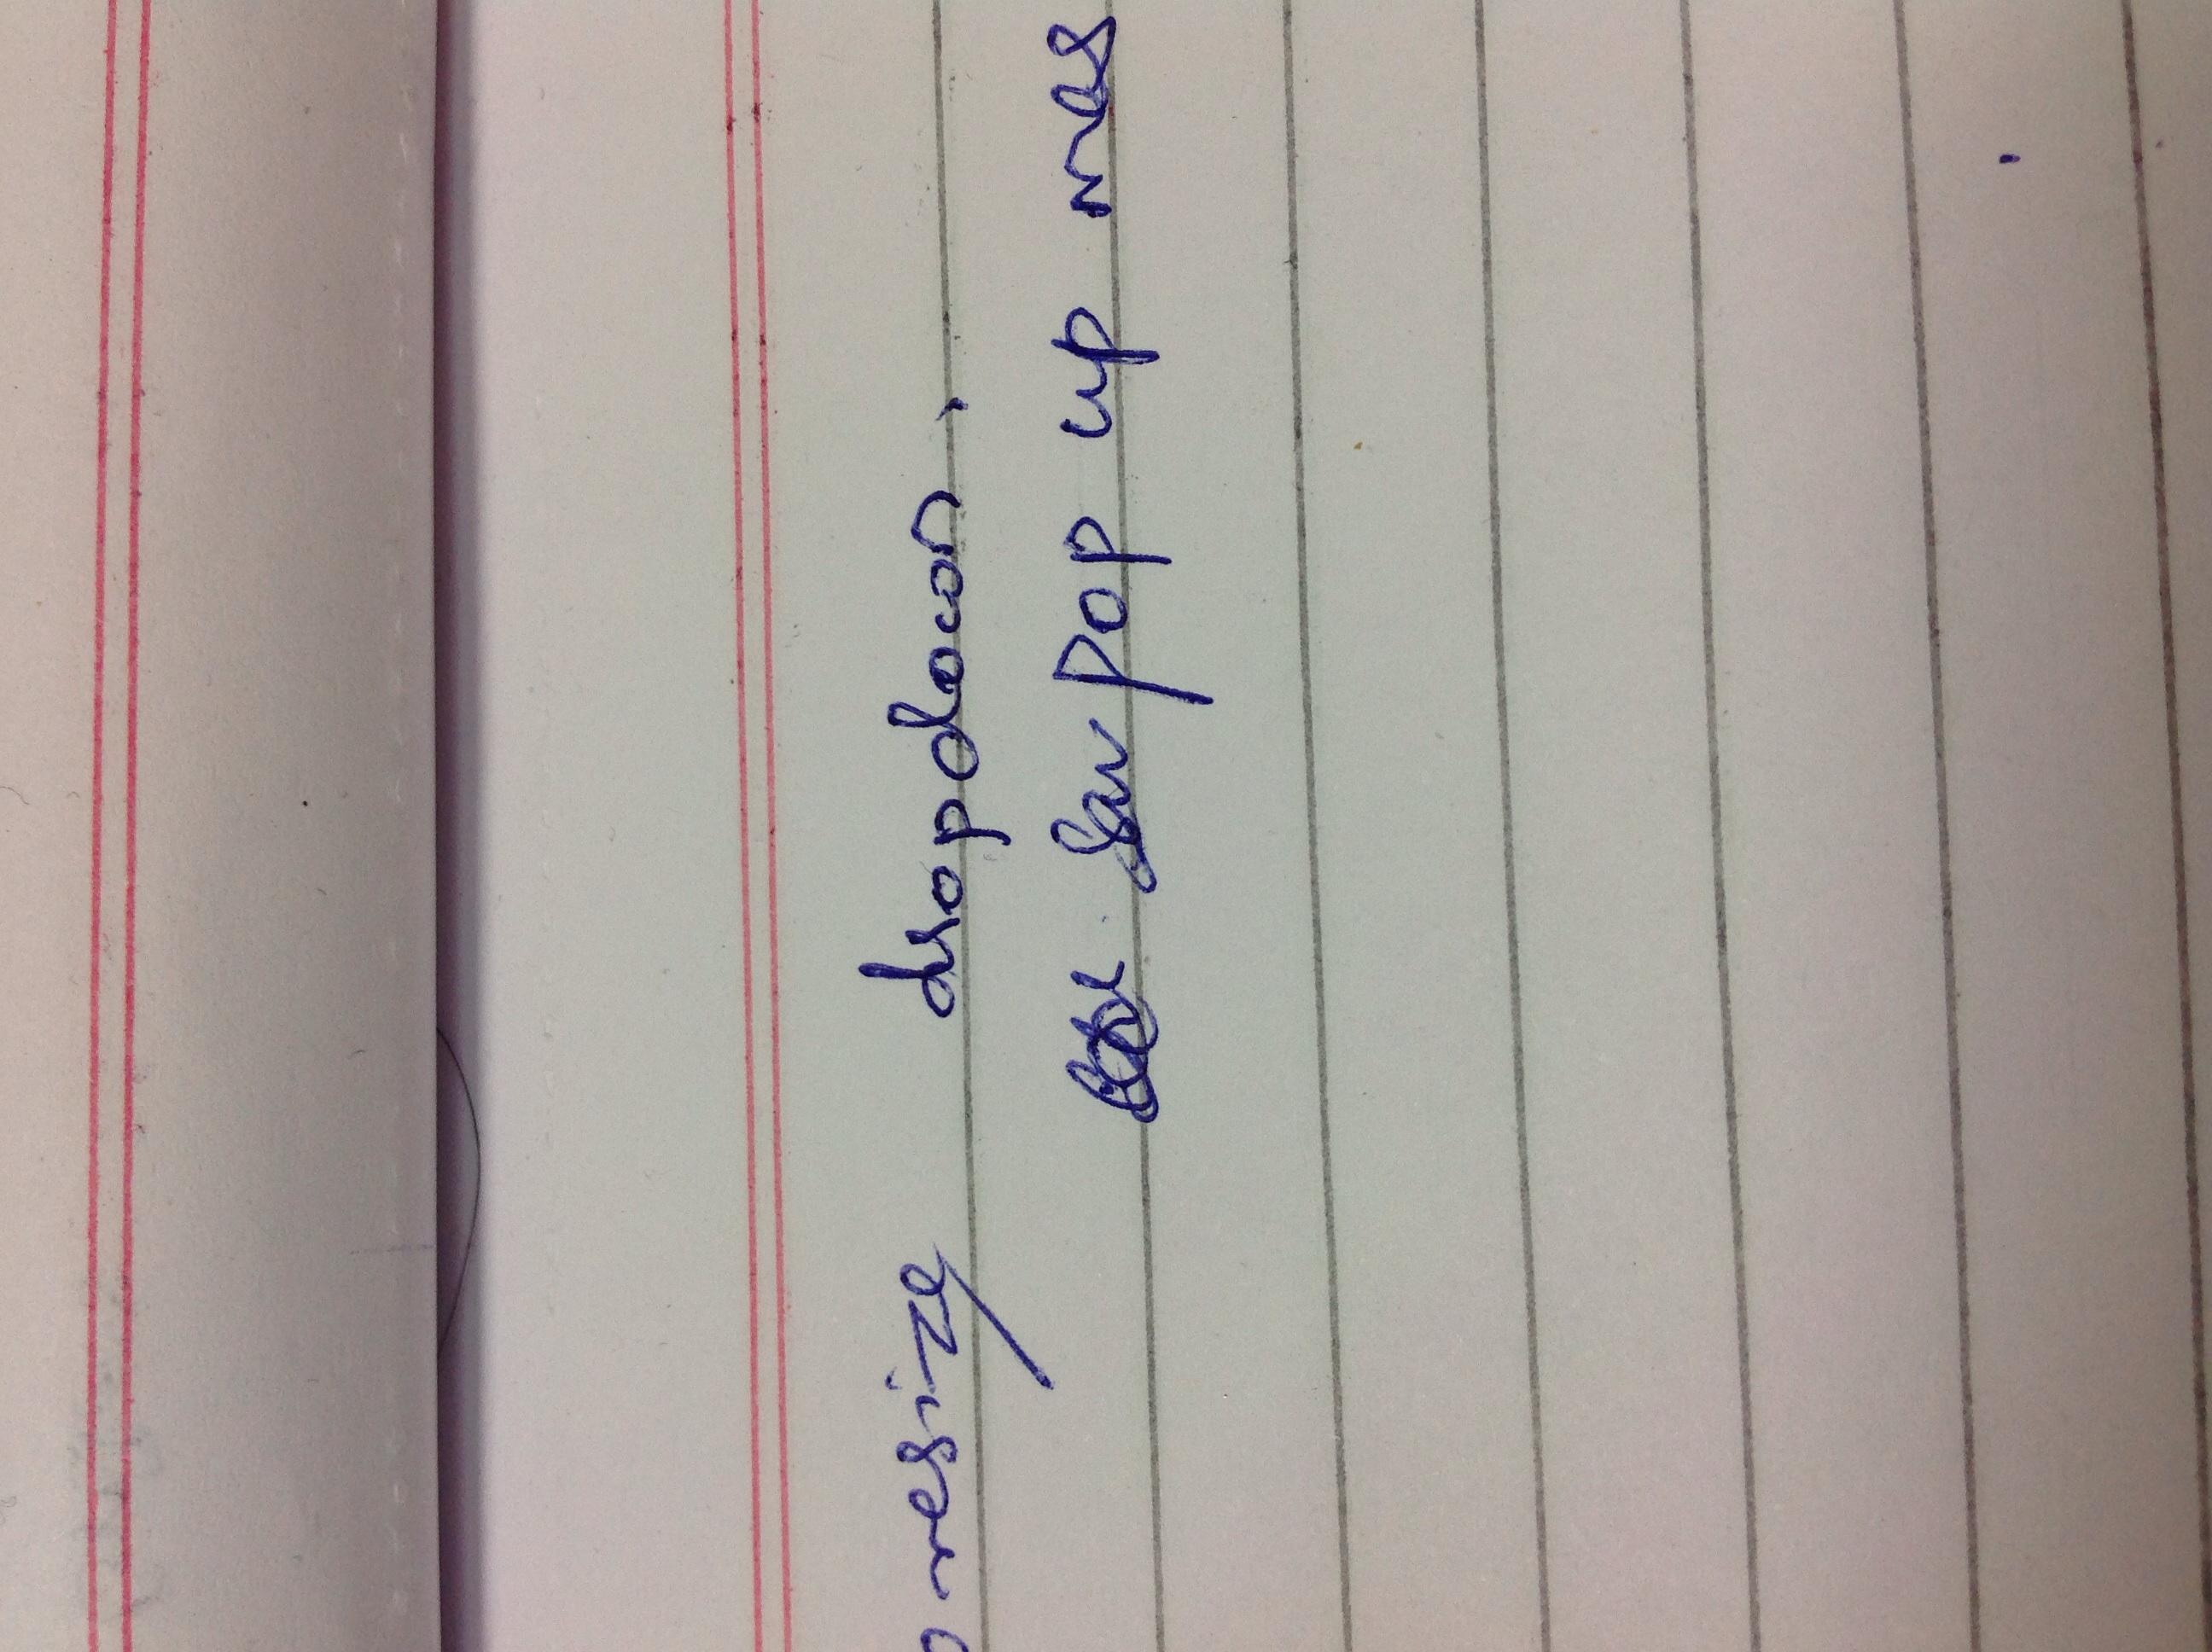 resize dropdown,
Sav pop up mes